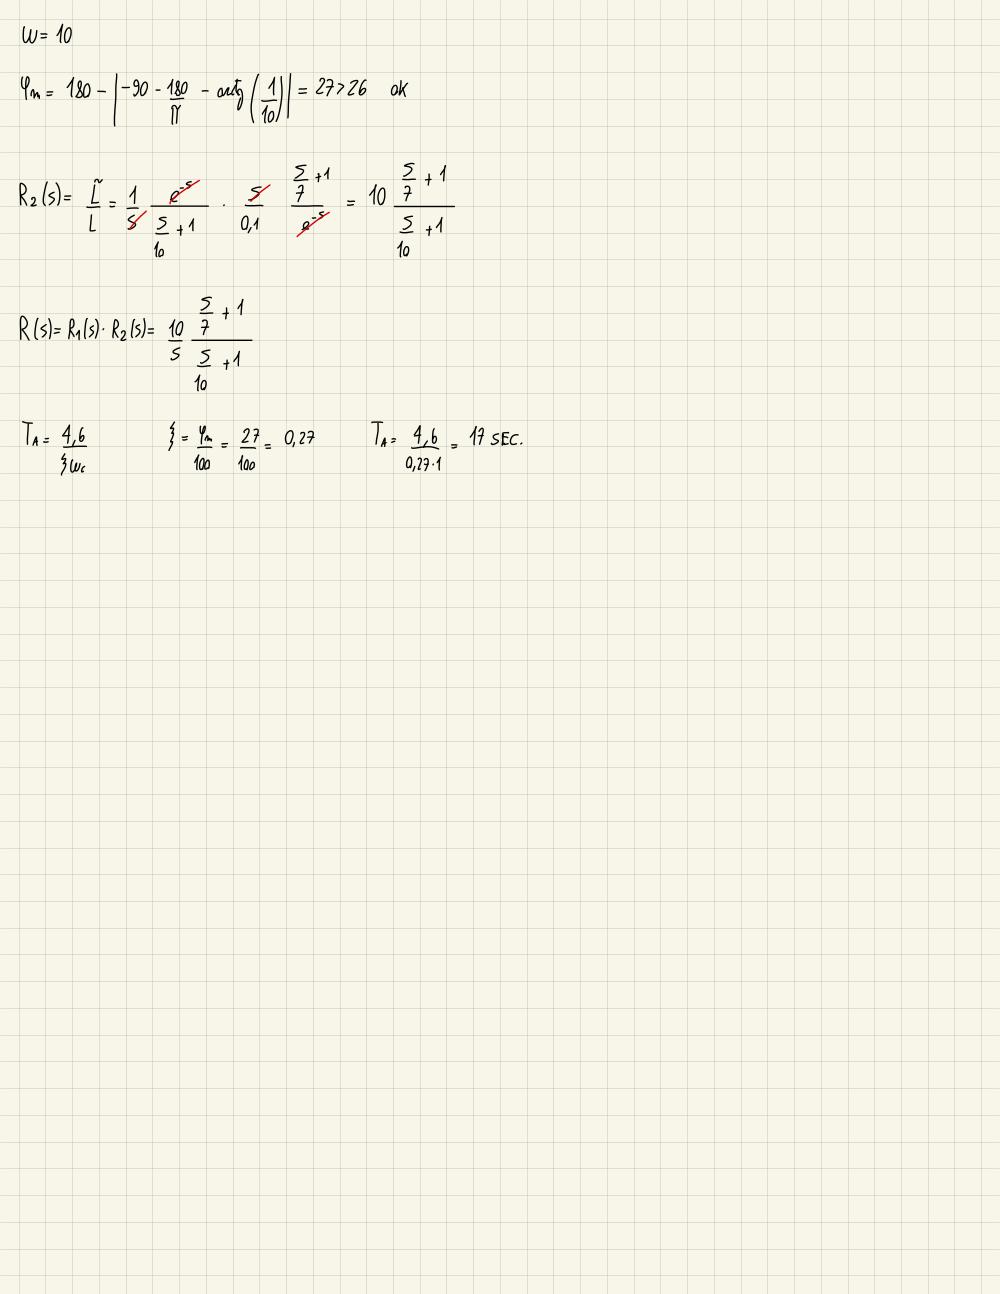 ω = 10
φm = 180 - |-90 - 180/π - arctg(1/10)| = 27 > 26 ok
R2(s) = L̃/L = 1/s · e^-s/(s/10 + 1) · s/0,1 · (s/7 + 1)/e^-s = 10 (s/7 + 1)/(s/10 + 1)
R(s) = R1(s) · R2(s) = 10/s (s/7 + 1)/(s/10 + 1)
TA = 4,6/ξωc ξ = φm/100 = 27/100 = 0,27 TA = 4,6/0,27·1 = 17 SEC.